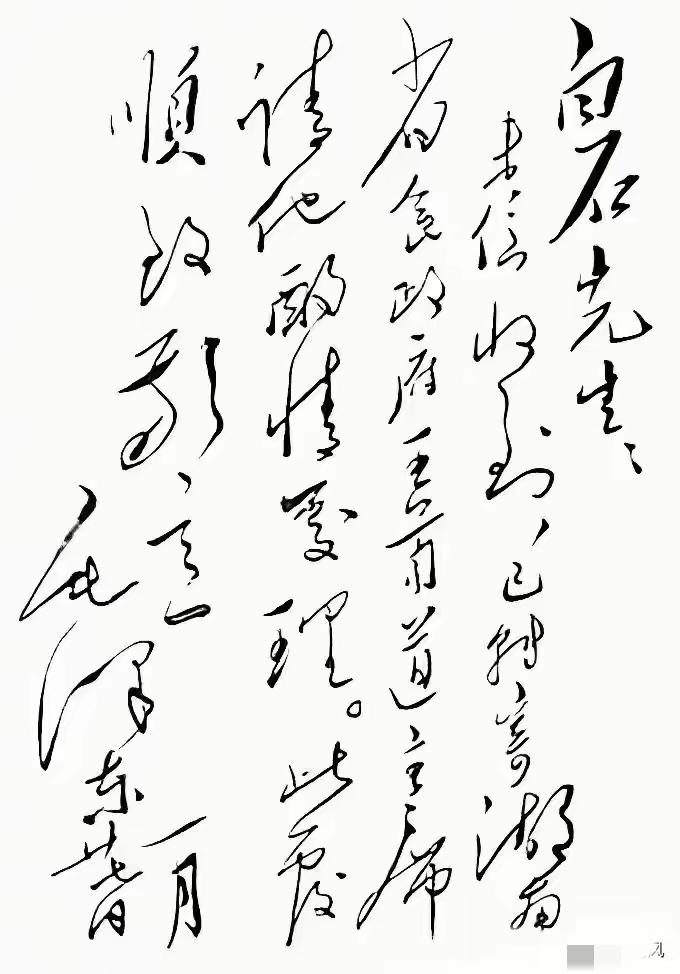 白石先生：
来信收到，已转寄湖南
省人民政府王首道主席
请他酌情处理。此覆
顺致敬意
毛泽东 一月
廿七日